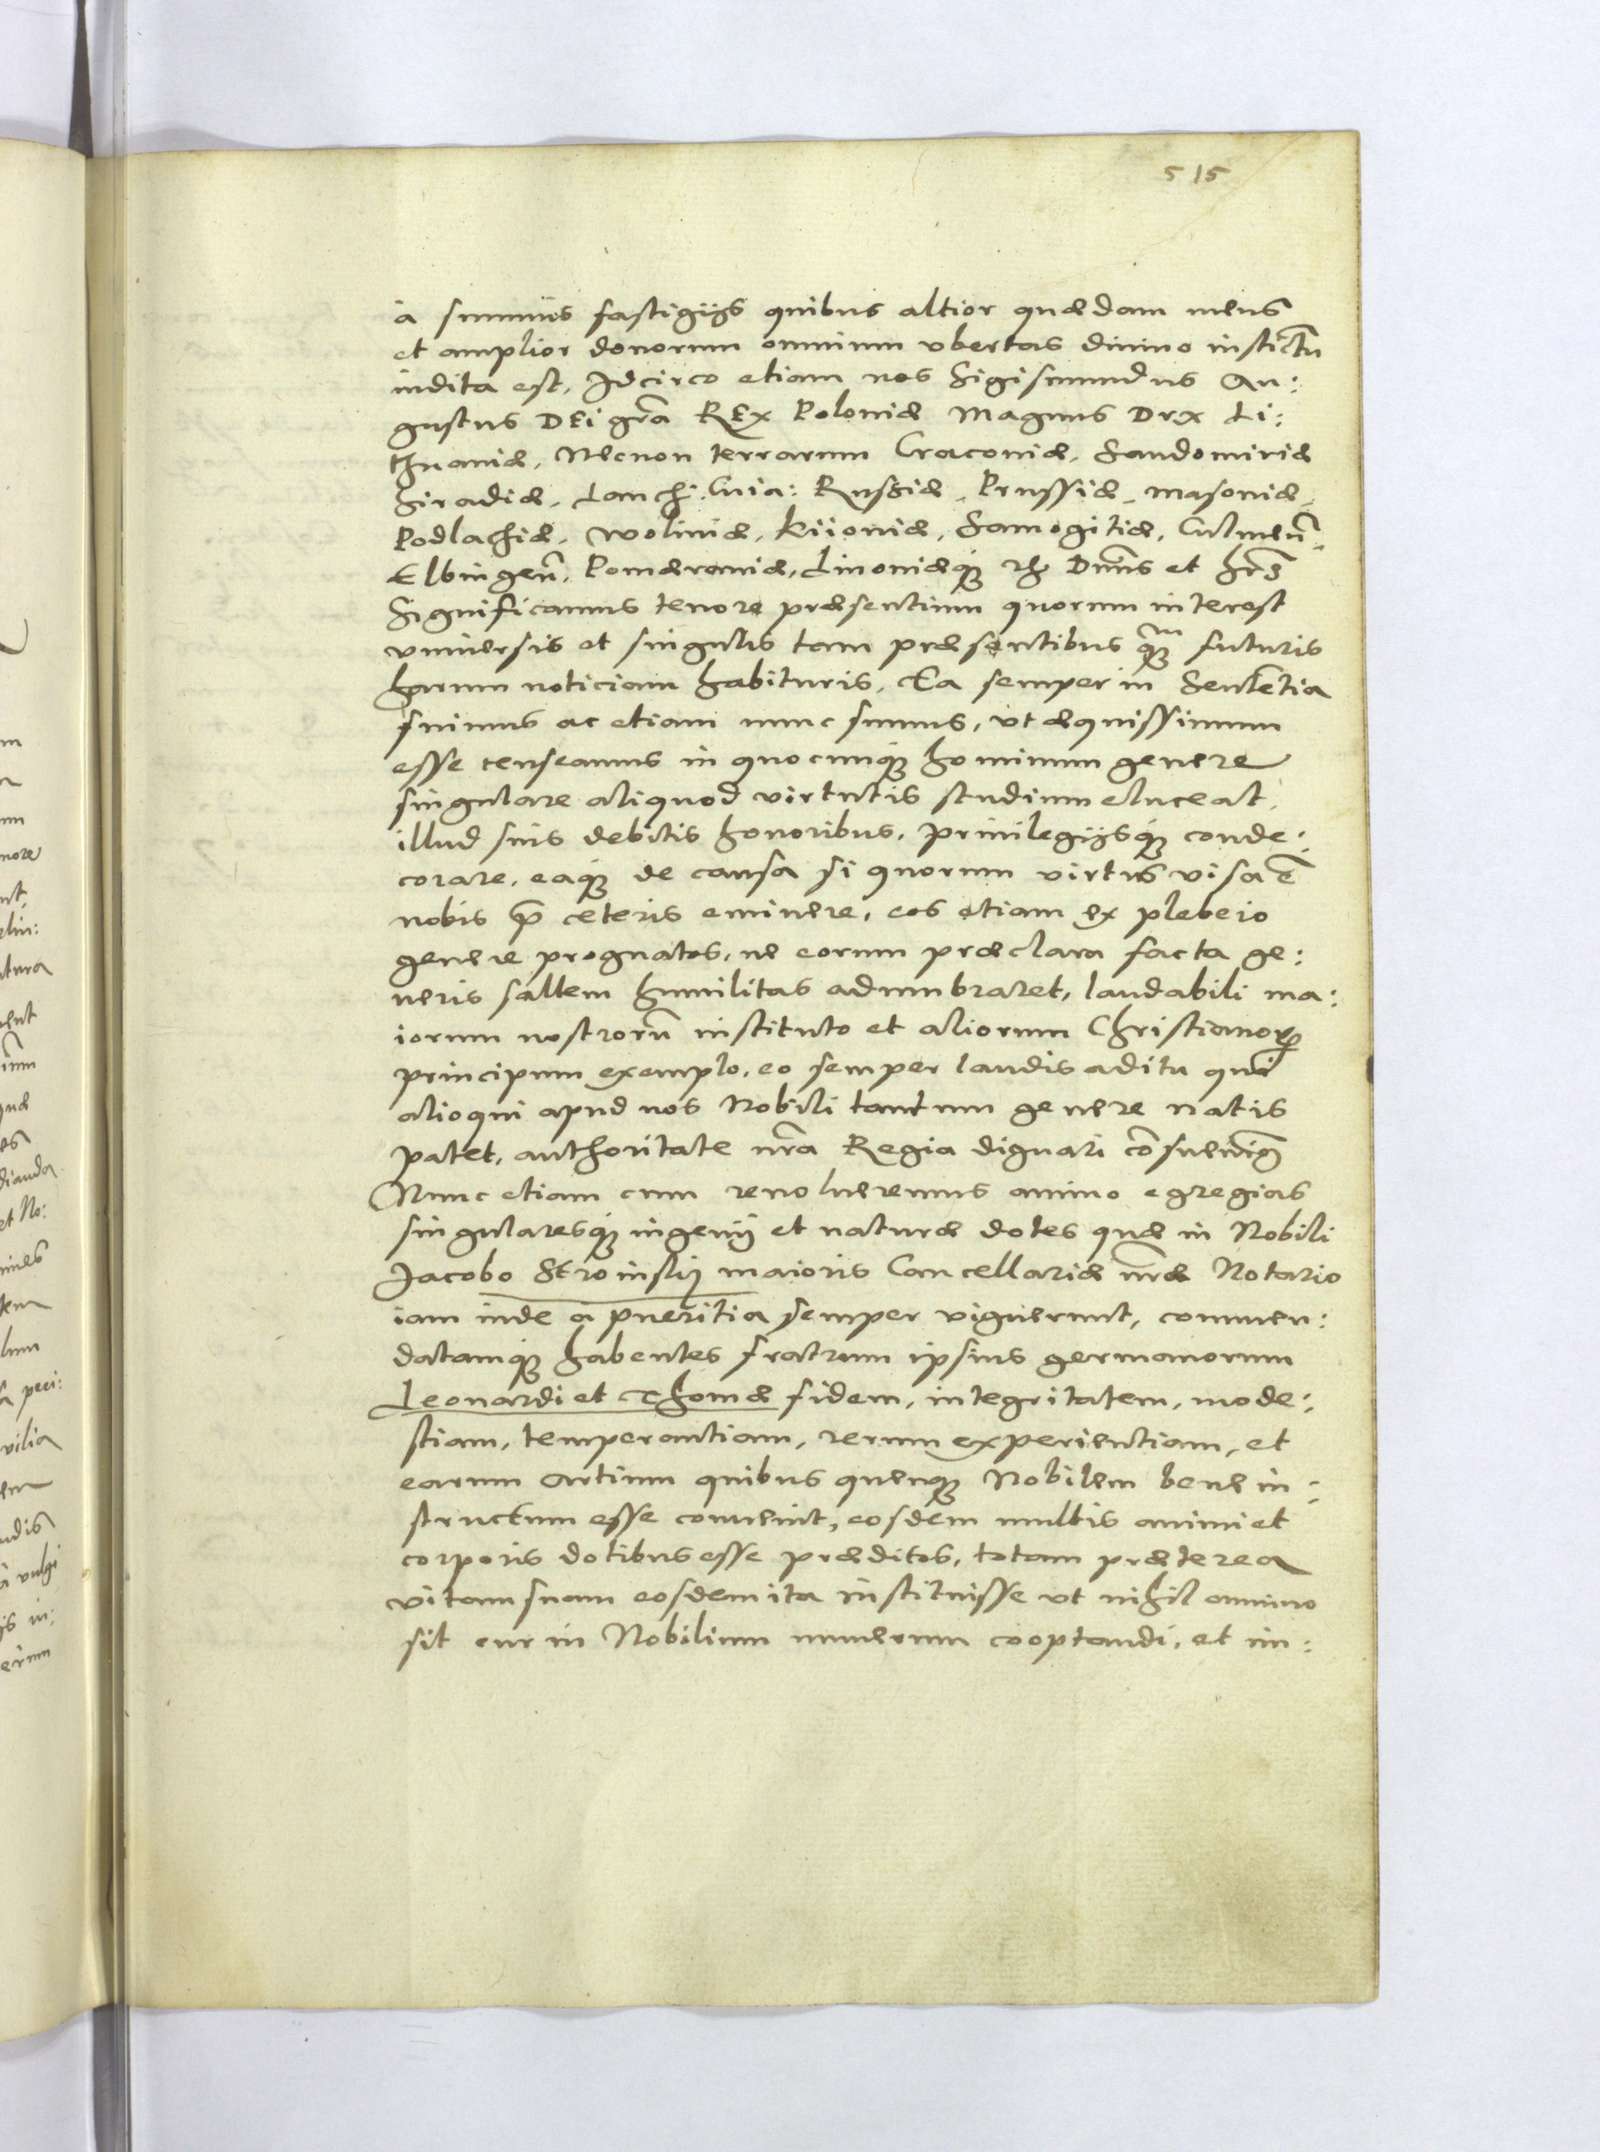 515
à summis fastigijs quibus altior quædam mens
et amplior donorum omnium vbertas diuino instictu
indita est, Idcirco etiam nos Sigismundus Au:
gustus DEi gr̃a REx Poloniæ Magnus Dux Li:
thuaniæ, Necnon terrarum Cracoviæ, Sandomiriæ
Siradiæ, Lanchi. Cuia: Russiæ, Prussiæ, Masoviæ,
Podlachiæ, Woliniæ, Kiioviæ, Samogitiæ, Culmeñ,
Elbingeñ, Pomæraniæ, Livoniæq₃ Dñns et hr̃es
Significamus tenore præsentium quorum interest
vniuersis et singulis tam præsentibus q̃₃ futuris
harum noticiam habituris, Ea semper in Sentẽtia
fuimus ac etiam nunc sumus, vt æquissimum
esse censeamus in quocunq₃ hominum genere
singulare aliquod virtutis studium eluceat,
illud suis debitis honoribus, priuilegijsq₃ conde:
corare, eaq₃ de causa si quorum virtus visa ẽ
nobis p̃ ceteris eminere, eos etiam ex plebeio
genere prognatos, ne eorum præclara facta ge:
neris saltem humilitas adumbraret, laudabili ma:
iorum nostrorũ instituto et aliorum Christianorꝝ
principum exemplo, eo semper laudis aditu qui
alioqui apud nos Nobili tantum genere natis
patet, authoritate nr̃a Regia dignari cõsueuimꝰ
Nunc etiam cum reuolueremus animo egregias
singularesq₃ ingenij et naturæ dotes quæ in Nobili
Jacobo Stroinskij maioris Cancellariæ nr̃æ Notario
iam inde à pueritia semper viguerunt, commen:
datamq₃ habentes fratrum ipsius germanorum
Leonardi et Thomæ fidem, integritatem, mode:
stiam, temperantiam, rerum experientiam, et
earum artium quibus quenq₃ Nobilem bene in:
structum esse conuenit, eosdem multis animi et
corporis dotibus esse præditos, totam præterea
vitam suam eosdem ita instituisse vt nihil omnino
sit cur in Nobilium numerum cooptandi, et im: